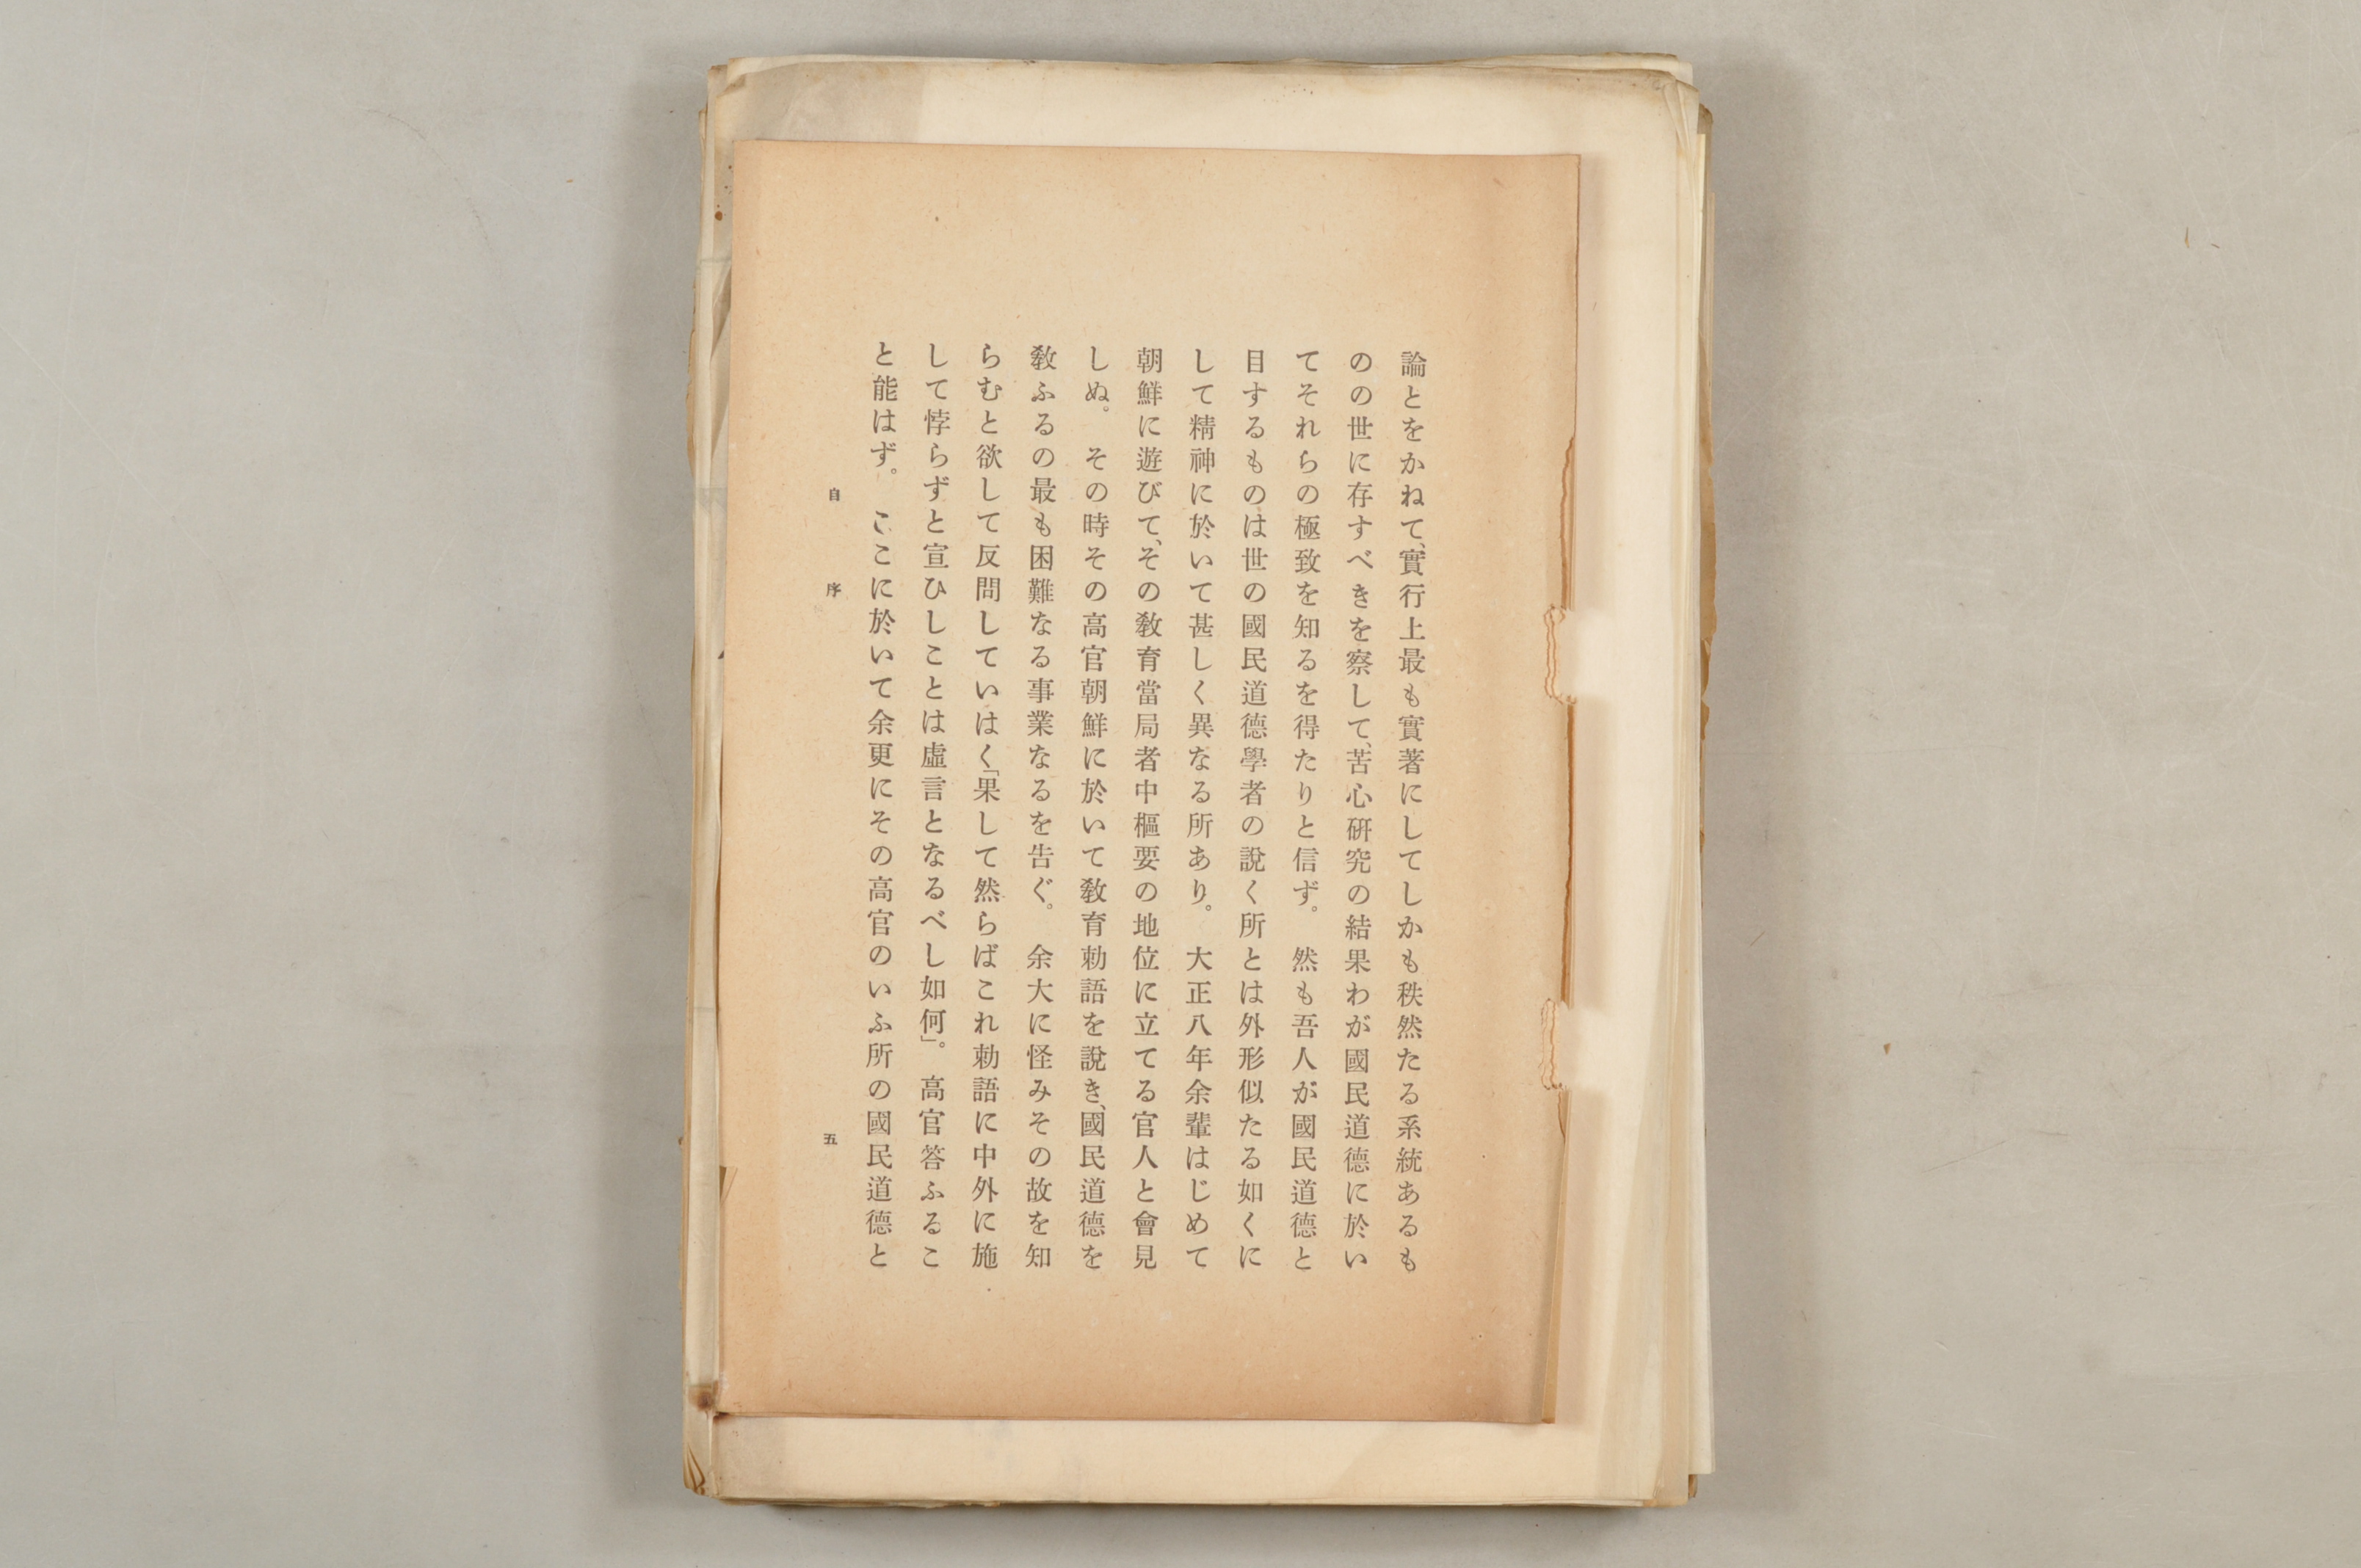 論とをかねて、實行上最も實著にしてしかも秩然たる系統あるも
のの世に存すべきを察して、苦心硏究の結果わが國民道德に於い
てそれらの極致を知るを得たりと信ず。然も吾人が國民道德と
目するものは世の國民道德學者の說く所とは外形似たる如くに
して精神に於いて甚しく異なる所あり。大正八年余輩はじめて
朝鮮に遊びて、その敎育當局者中樞要の地位に立てる官人と會見
しぬ。その時その高官朝鮮に於いて敎育勅語を說き、國民道德を
敎ふるの最も困難なる事業なるを告ぐ。余大に怪みその故を知
らむと欲して反問していはく「果して然らばこれ勅語に中外に施
して悖らずと宣ひしことは虛言となるべし如何」。高官答ふるこ
と能はず。ここに於いて余更にその高官のいふ所の國民道德と
自序
五